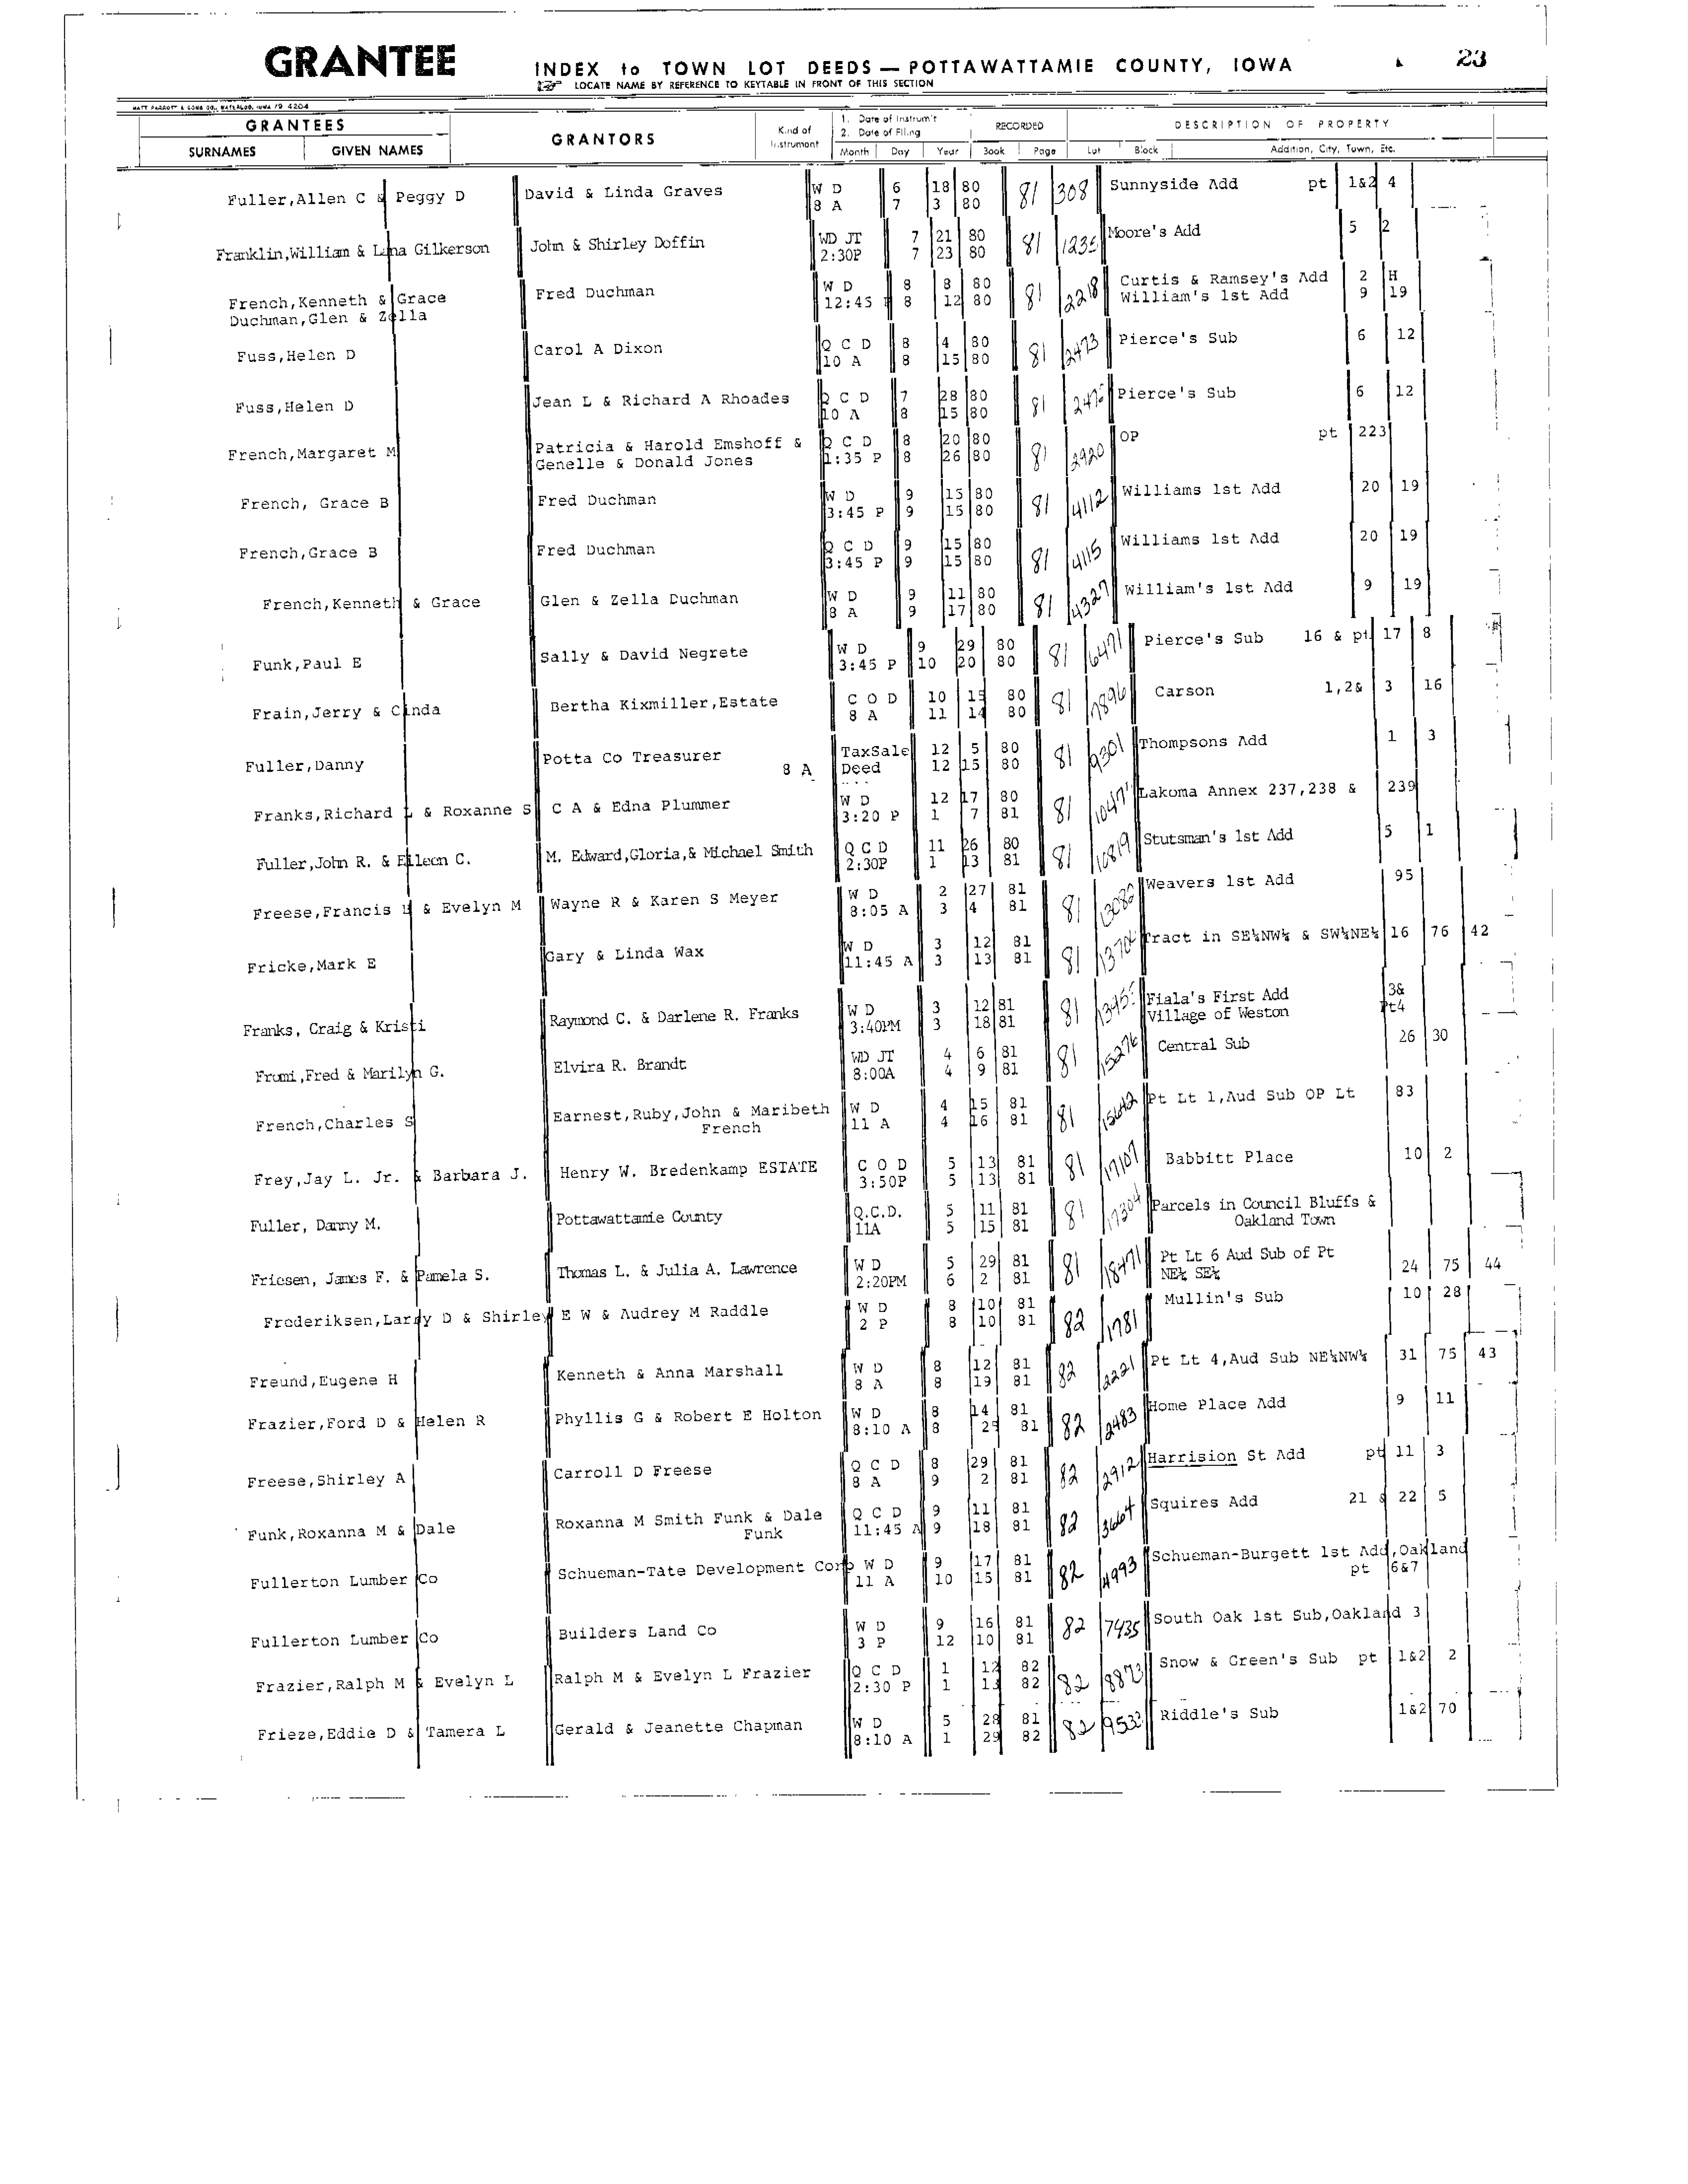 GRANTEE INDEX to TOWN LOT DEEDS — POTTAWATTAMIE COUNTY, IOWA 23
LOCATE NAME BY REFERENCE TO KEYTABLE IN FRONT OF THIS SECTION
MATT PARROTT & SONS CO., WATERLOO, IOWA 4204
GRANTEES GRANTORS Kind of Instrument 1. Date of Instrum't RECORDED DESCRIPTION OF PROPERTY
2. Date of Filing
SURNAMES GIVEN NAMES Month Day Year Book Page Lot Block Addition, City, Town, Etc.
Fuller,Allen C & Peggy D David & Linda Graves W D 6 18 80 81 308 Sunnyside Add pt 1&2 4
8 A 7 3 80
Franklin,William & Lina Gilkerson John & Shirley Doffin WD JT 7 21 80 81 Moore's Add 5 2
2:30P 7 23 80
French,Kenneth & Grace Fred Duchman W D 8 8 80 81 2218 Curtis & Ramsey's Add 2 H
Duchman,Glen & Zella 12:45 P 8 12 80 William's 1st Add 9 19
Fuss,Helen D Carol A Dixon Q C D 8 4 80 81 2473 Pierce's Sub 6 12
10 A 8 15 80
Fuss,Helen D Jean L & Richard A Rhoades Q C D 7 28 80 81 Pierce's Sub 6 12
10 A 8 15 80
French,Margaret M Patricia & Harold Emshoff & Q C D 8 20 80 81 2920 OP pt 223
Genelle & Donald Jones 1:35 P 8 26 80
French, Grace B Fred Duchman W D 9 15 80 81 4112 Williams 1st Add 20 19
3:45 P 9 15 80
French,Grace B Fred Duchman Q C D 9 15 80 81 4115 Williams 1st Add 20 19
3:45 P 9 15 80
French,Kenneth & Grace Glen & Zella Duchman W D 9 11 80 81 4327 William's 1st Add 9 19
8 A 9 17 80
Funk,Paul E Sally & David Negrete W D 9 29 80 81 6471 Pierce's Sub 16 & pt 17 8
3:45 P 10 20 80
Frain,Jerry & Cinda Bertha Kixmiller,Estate C O D 10 15 80 81 7896 Carson 1,2& 3 16
8 A 11 14 80
Fuller,Danny Potta Co Treasurer TaxSale 12 5 80 81 9301 Thompsons Add 1 3
8 A Deed 12 15 80
Franks,Richard L & Roxanne S C A & Edna Plummer W D 12 17 80 81 Lakoma Annex 237,238 & 239
3:20 P 1 7 81
Fuller,John R. & Eileen C. M. Edward,Gloria,& Michael Smith Q C D 11 26 80 81 10819 Stutsman's 1st Add 5 1
2:30P 1 13 81
Freese,Francis L & Evelyn M Wayne R & Karen S Meyer W D 2 27 81 81 Weavers 1st Add 95
8:05 A 3 4 81
Fricke,Mark E Gary & Linda Wax W D 3 12 81 81 Tract in SE¼NW¼ & SW¼NE¼ 16 76 42
11:45 A 3 13 81
Franks, Craig & Kristi Raymond C. & Darlene R. Franks W D 3 12 81 81 Fiala's First Add 3&
3:40PM 3 18 81 Village of Weston Pt4
Fromi,Fred & Marilyn G. Elvira R. Brandt WD JT 4 6 81 81 15276 Central Sub 26 30
8:00A 4 9 81
French,Charles S Earnest,Ruby,John & Maribeth W D 4 15 81 81 15642 Pt Lt 1,Aud Sub OP Lt 83
French 11 A 4 16 81
Frey,Jay L. Jr. & Barbara J. Henry W. Bredenkamp ESTATE C O D 5 13 81 81 17107 Babbitt Place 10 2
3:50P 5 13 81
Fuller, Danny M. Pottawattamie County Q.C.D. 5 11 81 81 17304 Parcels in Council Bluffs &
11A 5 15 81 Oakland Town
Friesen, James F. & Pamela S. Thomas L. & Julia A. Lawrence W D 5 29 81 81 18471 Pt Lt 6 Aud Sub of Pt
2:20PM 6 2 81 NE¼ SE¼ 24 75 44
Frederiksen,Larry D & Shirley E W & Audrey M Raddle W D 8 10 81 82 1781 Mullin's Sub 10 28
2 P 8 10 81
Freund,Eugene H Kenneth & Anna Marshall W D 8 12 81 82 2221 Pt Lt 4,Aud Sub NE¼NW¼ 31 75 43
8 A 8 19 81
Frazier,Ford D & Helen R Phyllis G & Robert E Holton W D 8 14 81 82 2483 Home Place Add 9 11
8:10 A 8 25 81
Freese,Shirley A Carroll D Freese Q C D 8 29 81 82 2912 Harrision St Add pt 11 3
8 A 9 2 81
Funk,Roxanna M & Dale Roxanna M Smith Funk & Dale Q C D 9 11 81 82 3664 Squires Add 21 & 22 5
Funk 11:45 A 9 18 81
Fullerton Lumber Co Schueman-Tate Development Corp W D 9 17 81 82 4993 Schueman-Burgett 1st Add,Oakland
11 A 10 15 81 pt 6&7
Fullerton Lumber Co Builders Land Co W D 9 16 81 82 7435 South Oak 1st Sub,Oakland 3
3 P 12 10 81
Frazier,Ralph M & Evelyn L Ralph M & Evelyn L Frazier Q C D 1 12 82 82 8873 Snow & Green's Sub pt 1&2 2
2:30 P 1 13 82
Frieze,Eddie D & Tamera L Gerald & Jeanette Chapman W D 5 28 81 82 9533 Riddle's Sub 1&2 70
8:10 A 1 29 82